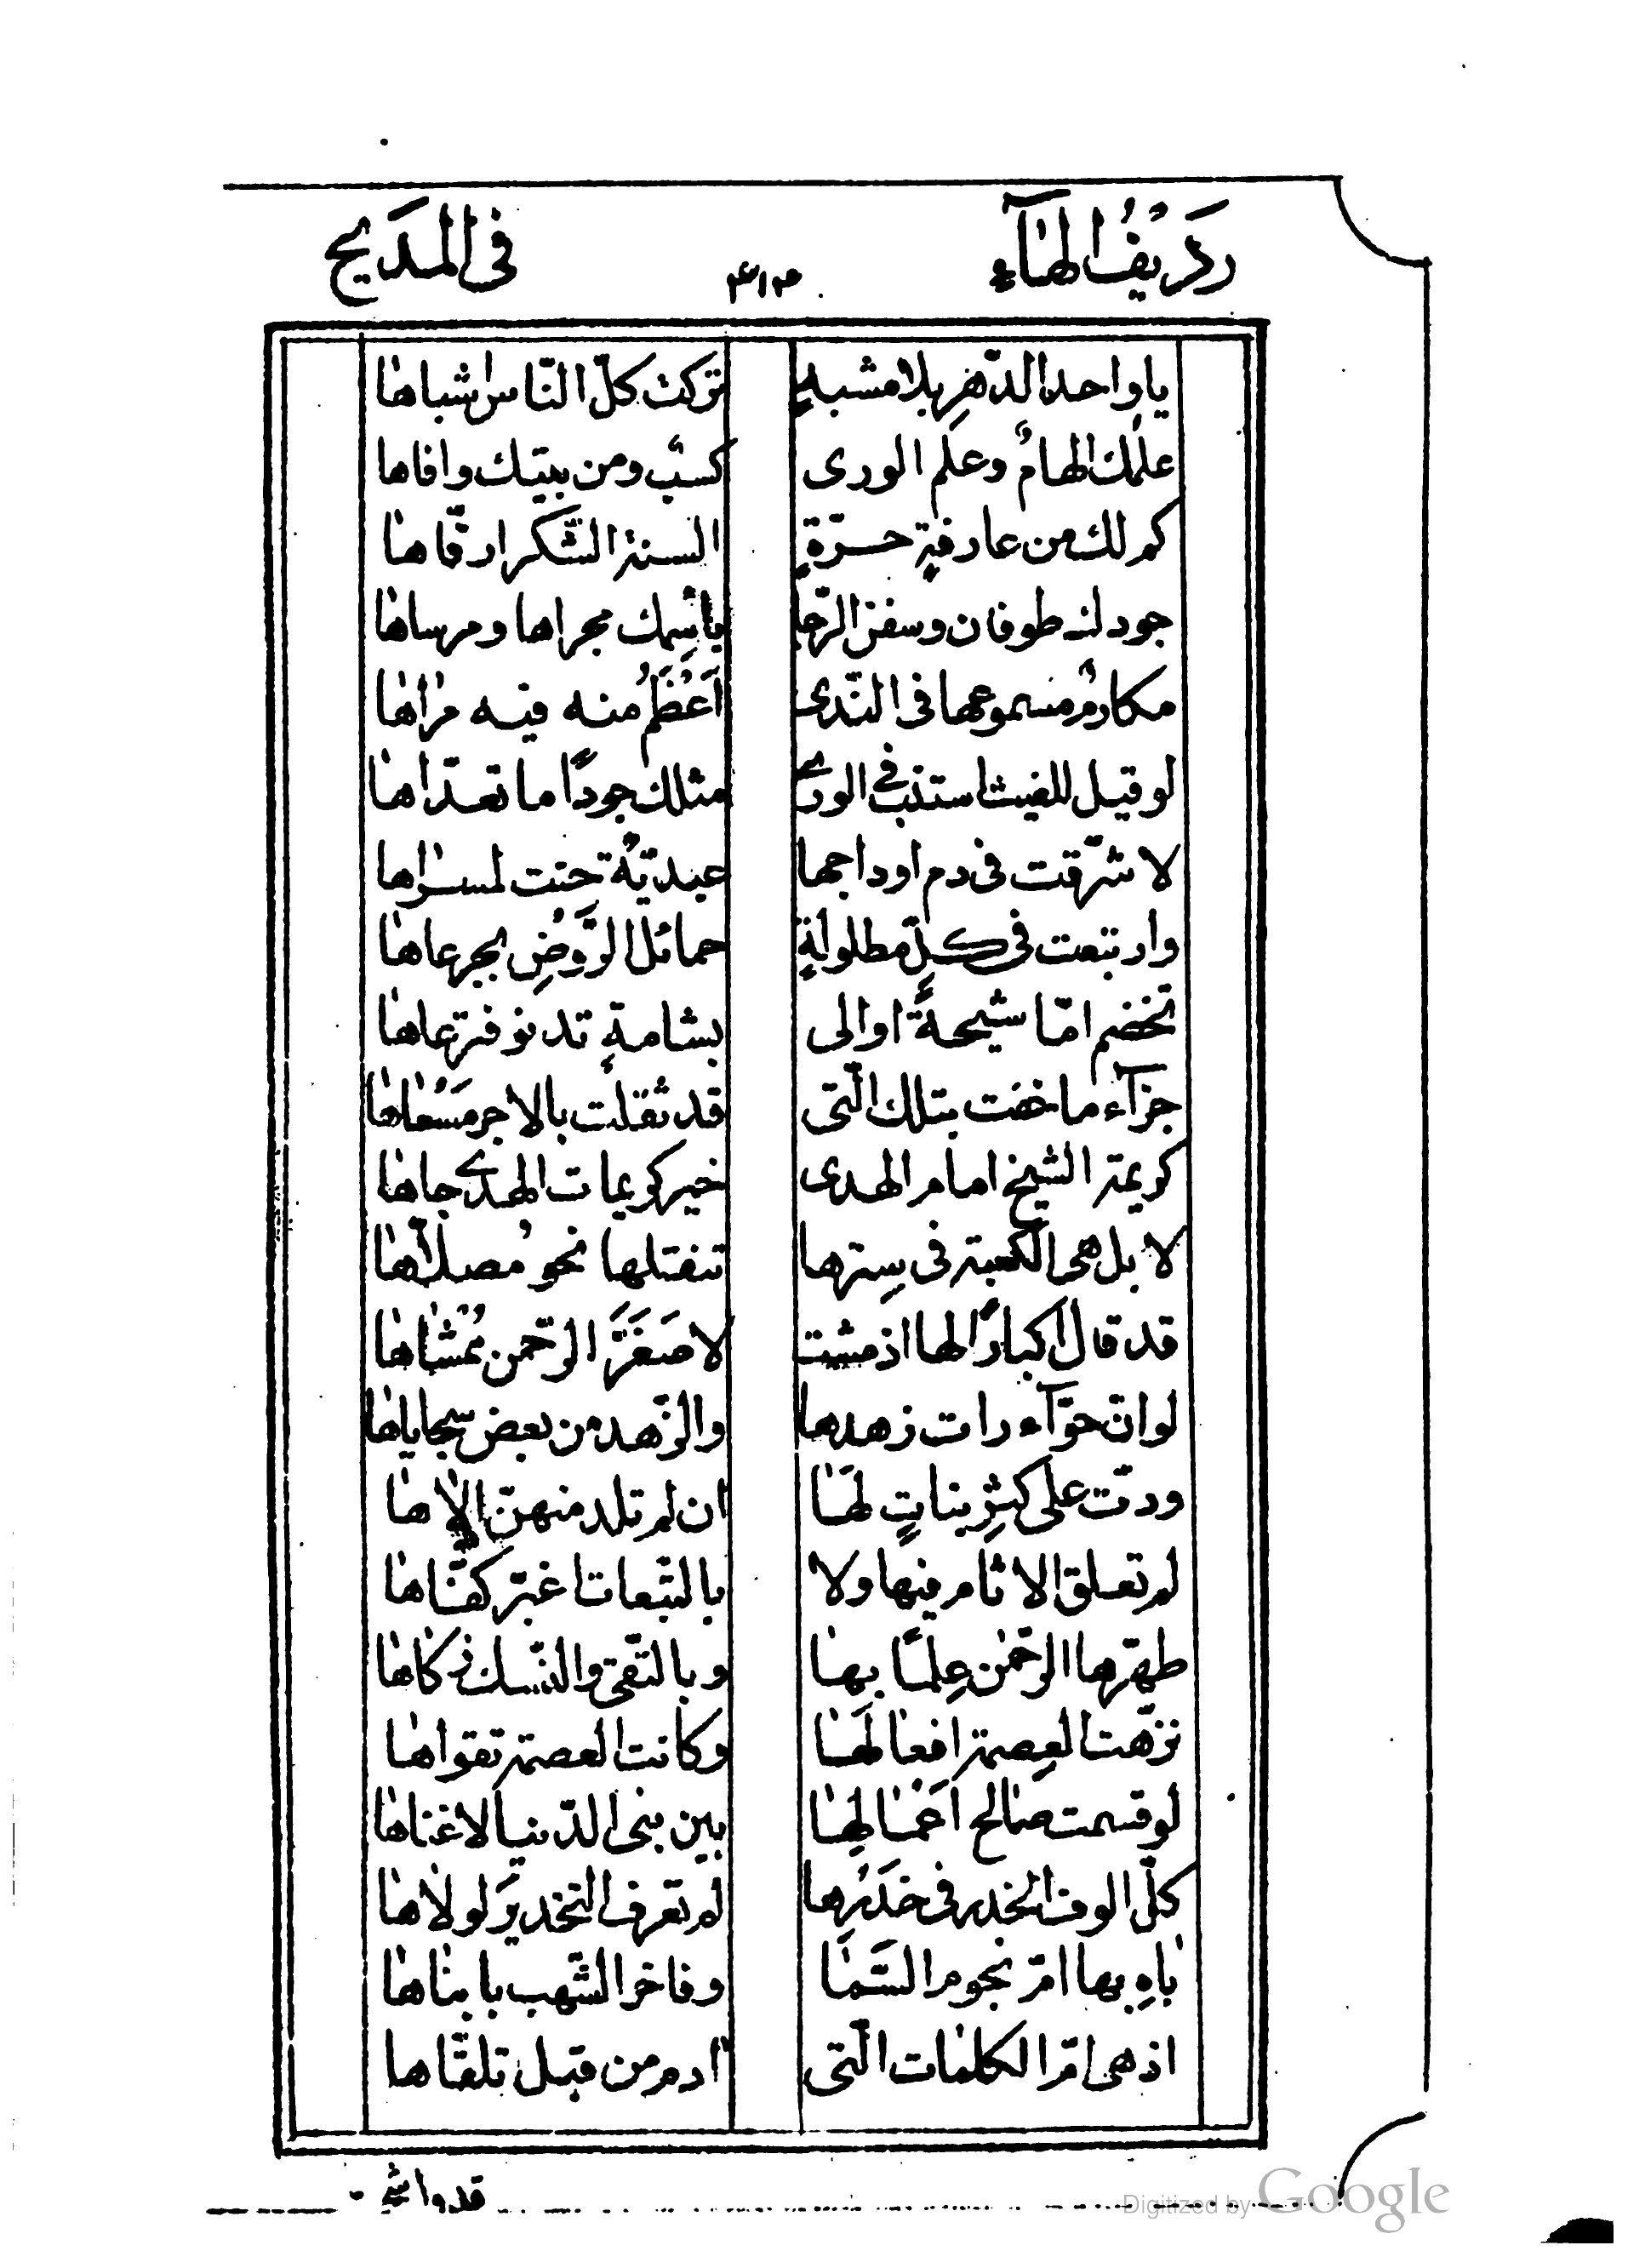 رَدِيْفُ الهَآءِ ٣١٣ فى المَديح
يا واحد الدّهرِ بلا مشبهٍ تركت كلّ النّاس اشباها
علمك الهامٌ وعلم الورى كسبٌ ومن بيتك وافاها
كم لك من عارفةٍ حرّةٍ السنة الشّكر ارقّاها
جودك طوفان وسفن الرّجا بأسمك مجراها ومرساها
مكارم مسموعها فى النّدى اَعْظَمُ منه فيه مرٰاها
لو قيل للغيث استنب فى الورى مثلك جودًا ما تعدّاها
لا شرّقت فى دم اوداجها عيديّةٌ حنت لمسراها
وارتبعت فى كلّ مطلولةٍ خمائل الرَّوضِ بجرعاها
تخضم امّا شيحةً او الى بشامةٍ تدنو فترعاها
جزآء ما خفت بتلك الّتى قد ثقلت بالاجر مَسْعٰاها
كريمة الشيخ امام الهدى خير كريمات الهدى جاها
لا بل هى الكعبة فى سِترها تنفتلها نحوُ مصلاّها
قد قال اكبارًا لها اذ مشت لا صَغَّرَ الرّحمن مُمْشٰاها
لو انّ حوّآء رات زهدها والزّهد من بعض سجاياها
ودّت على كثرِ بناتٍ لهَا ان لم تلد منهنّ الاّها
لم تعلق الاثام فيها ولا بالتّبعات اغبرّ كفّاها
طهّرها الرّحمٰن عِلمًا بها وبالتّقى والنّسك زكّاها
نزّهت العِصمة افعالَها وكانت العصمة تقواها
لو قسمت صٰالح اَعْمٰالِها بين بنى الدّنيا لاغناها
كلّ الوف الخدر فى خَدرُها لم تعرف التخديرَ لولاها
باهِ بها امّ نجوم السَّمٰا وفاخر الشّهب بابناها
اذ هى امّ الكلمات الّتى ادم من قبل تلقّاها
قد واشٍ
Digitized by Google